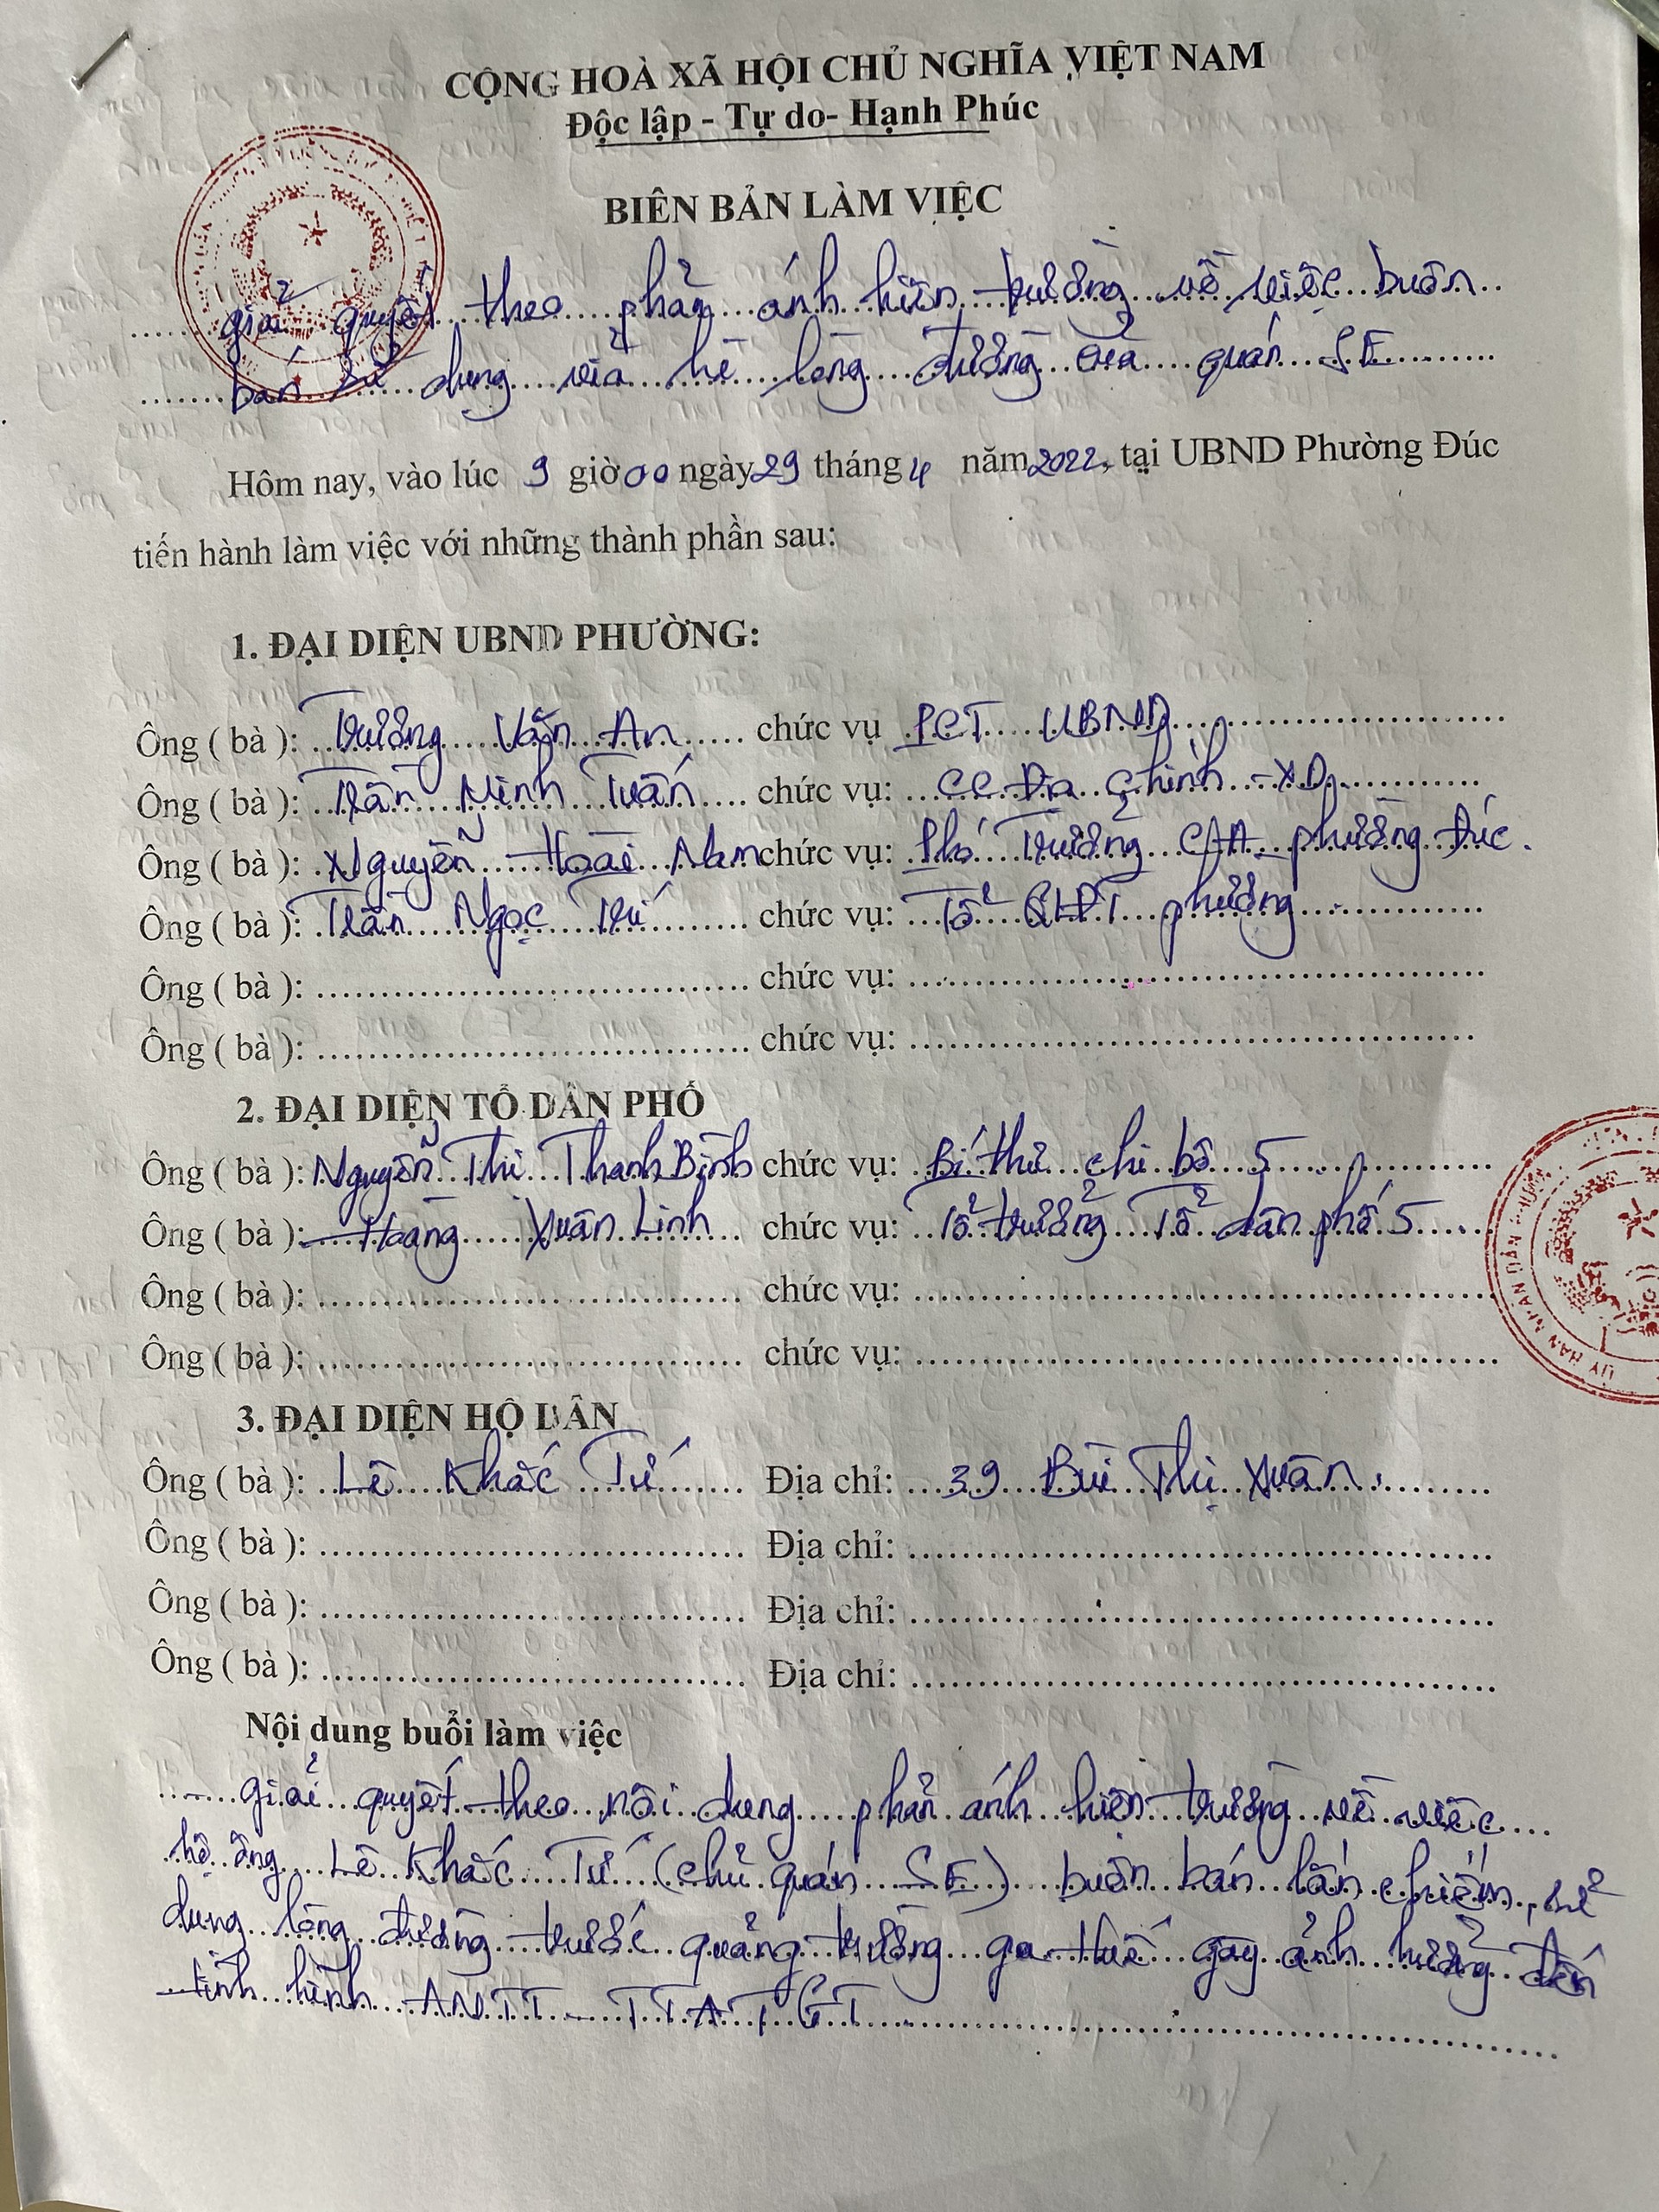 CỘNG HOÀ XÃ HỘI CHỦ NGHĨA VIỆT NAM
Độc lập - Tự do- Hạnh Phúc
BIÊN BẢN LÀM VIỆC
giải quyết theo phản ánh hiện trường về việc buôn
bán sử dụng vỉa hè lòng đường của quán SE
Hôm nay, vào lúc 9 giờ 00 ngày 29 tháng 4 năm 2022, tại UBND Phường Đúc
tiến hành làm việc với những thành phần sau:
1. ĐẠI DIỆN UBND PHƯỜNG:
Ông ( bà ): Trường Văn An chức vụ PCT UBND
Ông ( bà ): Trần Minh Tuấn chức vụ: CC Địa Chính - XD
Ông ( bà ): Nguyễn Hoài Nam chức vụ: Phó Trưởng CA phường Đúc.
Ông ( bà ): Trần Ngọc Trí chức vụ: Tổ QLĐT phường
Ông ( bà ): chức vụ:
Ông ( bà ): chức vụ:
2. ĐẠI DIỆN TỔ DÂN PHỐ
Ông ( bà ): Nguyễn Thị Thanh Bình chức vụ: Bí thư chi bộ 5
Ông ( bà ): Hoàng Xuân Linh chức vụ: Tổ trưởng Tổ dân phố 5
Ông ( bà ): chức vụ:
Ông ( bà ): chức vụ:
ỦY BAN NHÂN DÂN
3. ĐẠI DIỆN HỘ DÂN
Ông ( bà ): Lê Khắc Tứ Địa chỉ: 39 Bùi Thị Xuân
Ông ( bà ): Địa chỉ:
Ông ( bà ): Địa chỉ:
Ông ( bà ): Địa chỉ:
Nội dung buổi làm việc
giải quyết theo nội dung phản ánh hiện trường về việc
hộ ông Lê Khắc Tứ (chủ quán SE) buôn bán lấn chiếm, sử
dụng lòng đường trước quảng trường ga Huế gây ảnh hưởng đến
tình hình ANTT - TTATGT